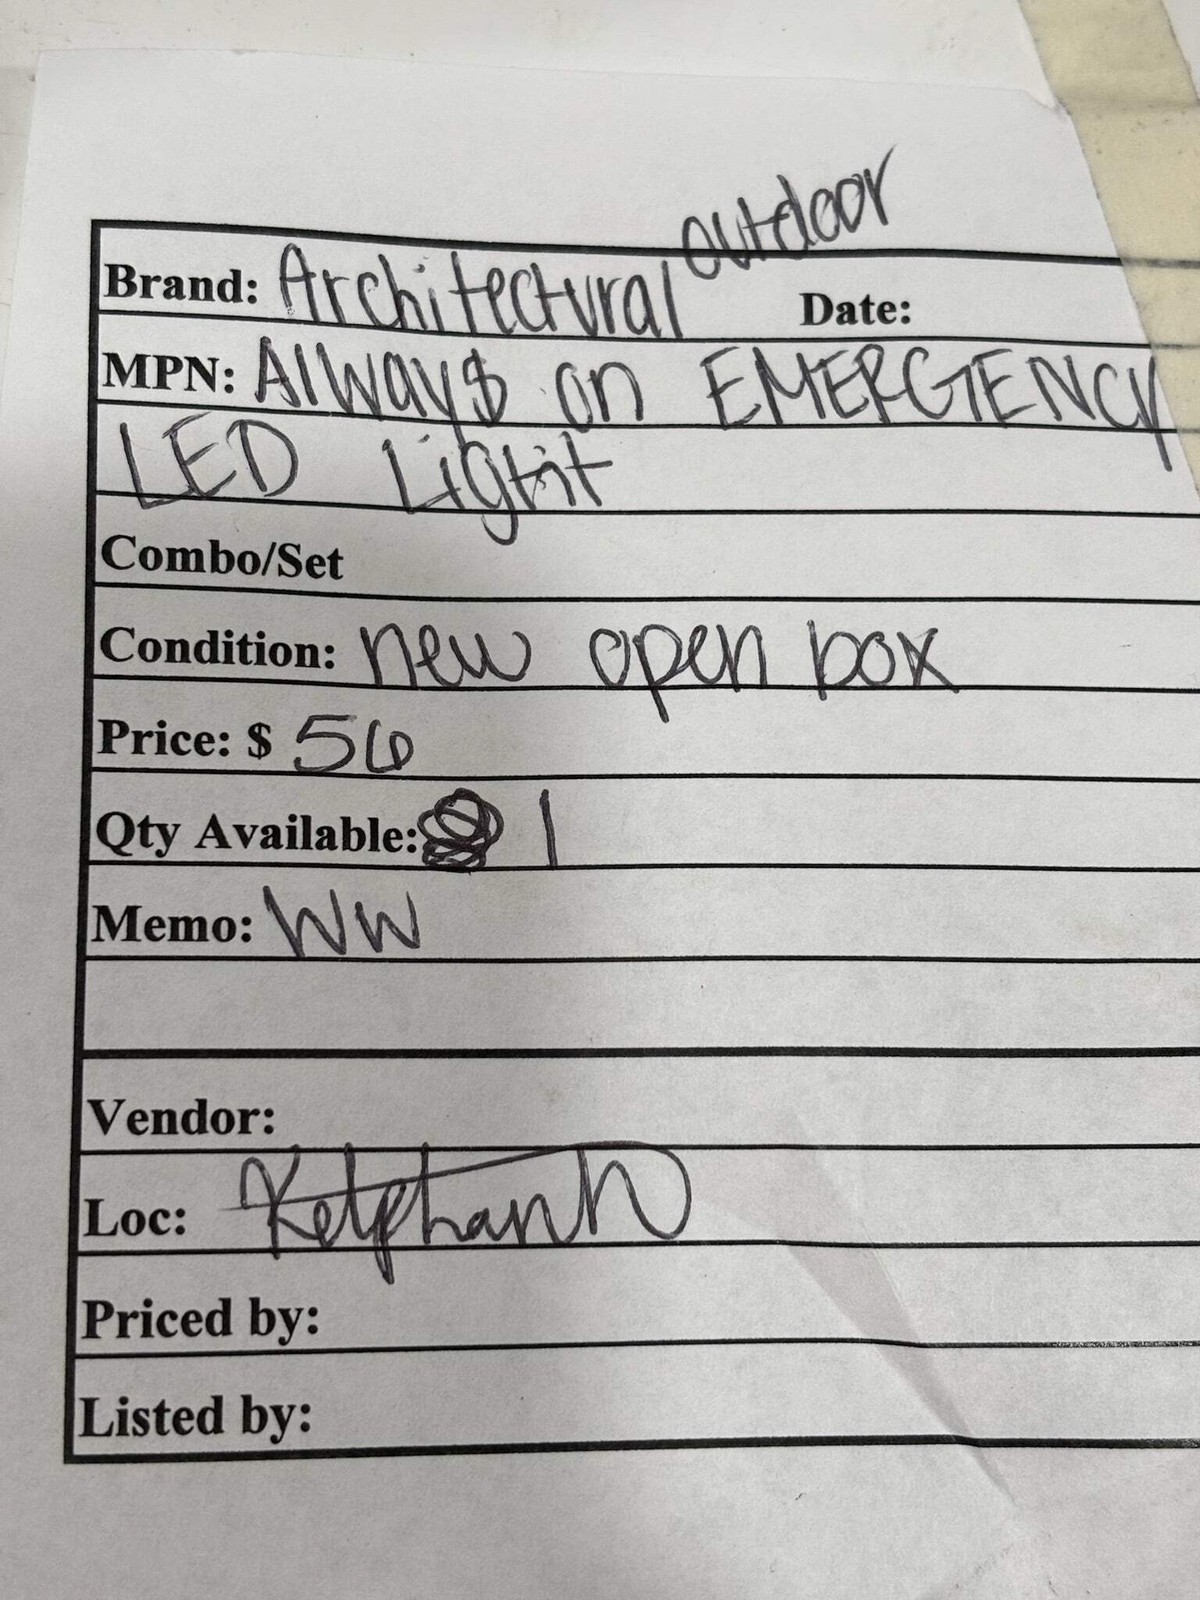 outdoor
Brand: Architectural Date:
MPN: Always on EMERGENCY
LED Light
Combo/Set
Condition: new open box
Price: $ 56
Qty Available: 1
Memo: WW
Vendor:
Loc:
Priced by:
Listed by: